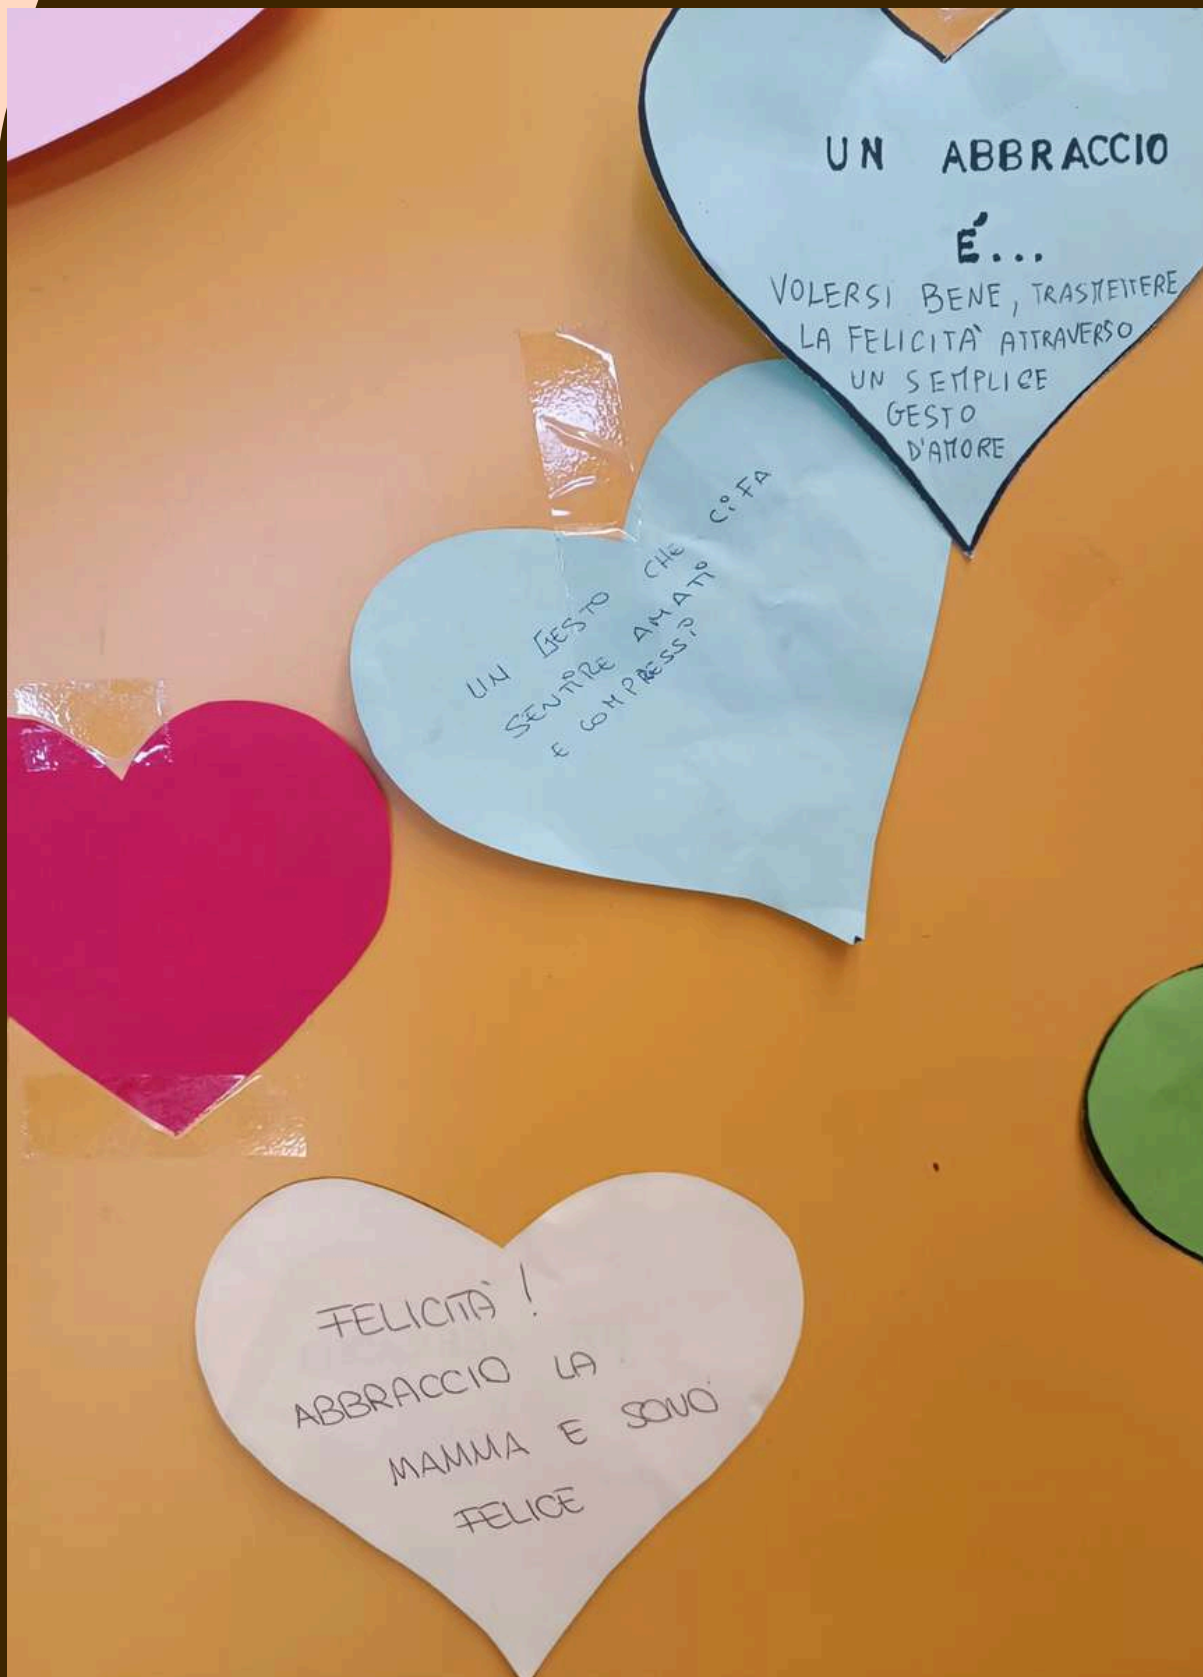 UN ABBRACCIO
É...
VOLERSI BENE, TRASMETTERE
LA FELICITÀ ATTRAVERSO
UN SEMPLICE
GESTO
D'AMORE
UN GESTO CHE CI FA
SENTIRE AMATI
E COMPRESSI
FELICITÀ!
ABBRACCIO LA
MAMMA E SONO
FELICE